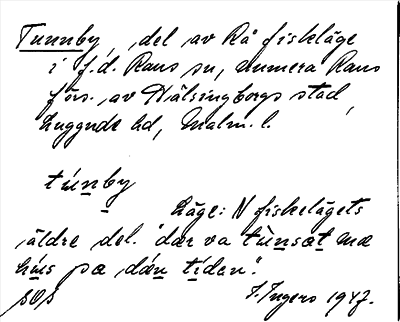 Tunnby, del av Rå fiskeläge
i f.d. Raus sn, numera Raus
förs. av Hälsingborgs stad,
Luggude hd, Malm. l.
túnby
Läge: N fiskelägets
äldre del. "där va tùnsәt mæ
hús pә dán tíden".
SOS
I. Ingers 1947.